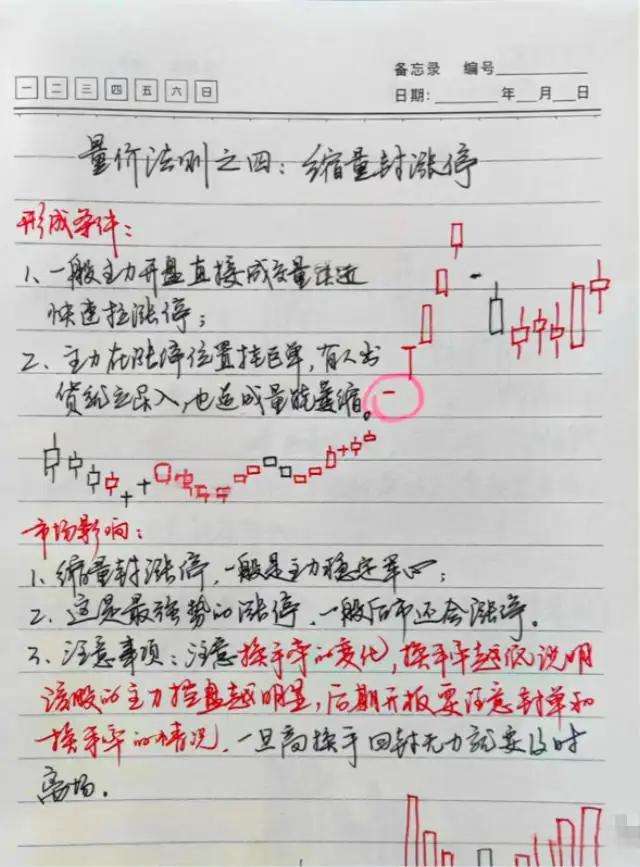 备忘录 编号
一 二 三 四 五 六 日
日期: 年 月 日
量价法则之四：缩量封涨停
形成条件：
1、一般主力开盘直接成交量
快速拉涨停；
2、主力在涨停位置挂巨单，有人出
货就立足入，也造成量能萎缩。
市场影响：
1、缩量封涨停，一般是主力稳定军心；
2、这是最强势的涨停，一般后市还会涨停。
3、注意事项：注意换手率的变化，换手率越低说明
该股的主力控盘越明显，后期开板要注意封单和
换手率的情况，一旦高换手回封无力就要及时
离场。